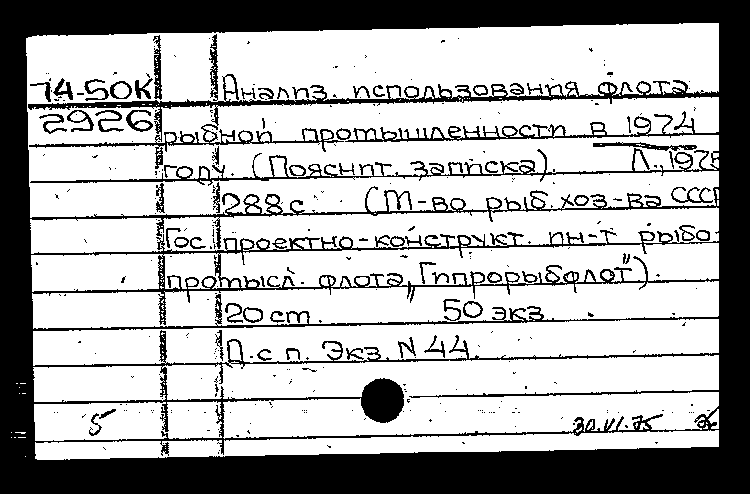 74-50К Анализ. использования флота
2926 рыбной промышленности в 1974
году. (Пояснит. записка). Л., 197
288с. (М-во рыб. хоз-ва СССР
Гос. проектно-конструкт. ин-т рыбо-
промысл. флота „Гипрорыбфлот").
20 ст. 50 экз.
Д.с п. Экз. N 44.
5 30.VI.75